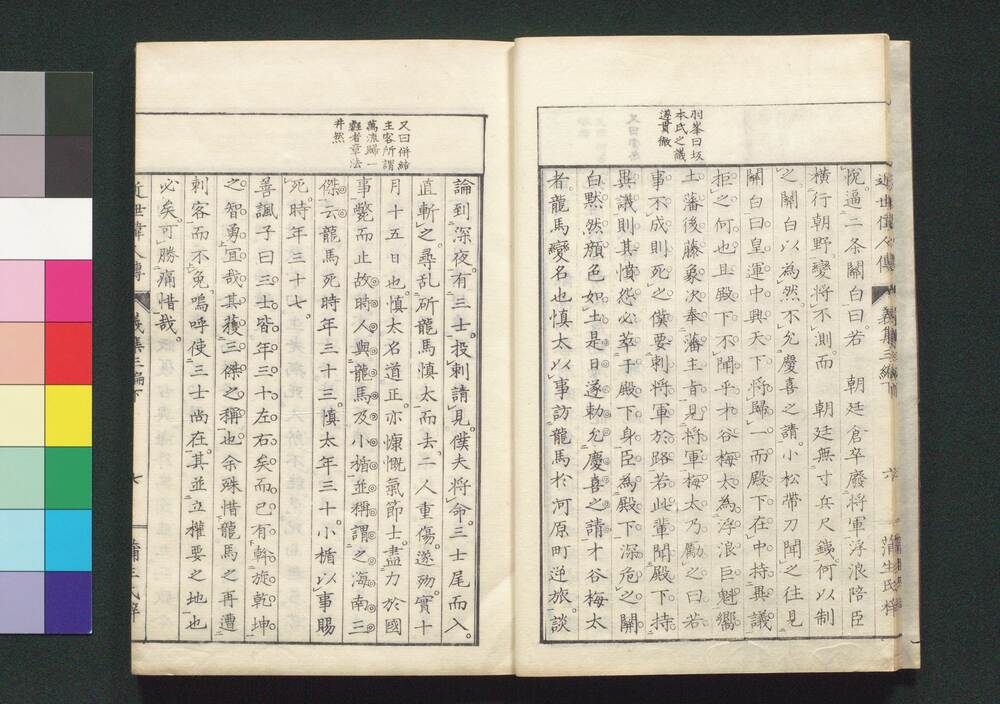 近世偉人傳 義集三編 六 蒲生氏梓
羽峯曰坂
本氏之議
遵貫徹
悅逼二条關白曰若 朝廷倉卒廢將軍浮浪陪臣
橫行朝野變將不測而 朝廷無寸兵尺鐵何以制
之關白以為然不允慶喜之請小松帶刀聞之往見
關白曰皇運中興天下將歸一而殿下在中持異議
拒之何也且殿下不聞乎才谷梅太為浮浪巨魁嚮
土藩後藤象次奉藩主旨見將軍梅太乃勵之曰若
事不成則死之僕要刺將軍於路若此輩聞殿下持
異議則其憤怨必萃于殿下身臣為殿下深危之關
白默然顏色如土是日遂勅允慶喜之請才谷梅太
者龍馬變名也慎太以事訪龍馬於河原町逆旅談
又曰併綰
主客所謂
萬派歸一
者章法
井然
論到深夜有三士投刺請見僕夫將命三士尾而入
直斬之尋乱斫龍馬慎太而去二人重傷遂歿實十
月十五日也慎太名道正亦慷慨氣節士盡力於國
事斃而止故時人與龍馬及小楯並稱謂之海南三
傑云龍馬死時年三十三慎太年三十小楯以事賜
死時年三十七
善諷子曰三士皆年三十左右矣而已有斡旋乾坤
之智勇宜哉其獲三傑之稱也余殊惜龍馬之再遭
刺客而不免嗚呼使三士尚在其並立權要之地也
必矣可勝痛惜哉
近世偉人傳 義集三編下 七 蒲生氏梓